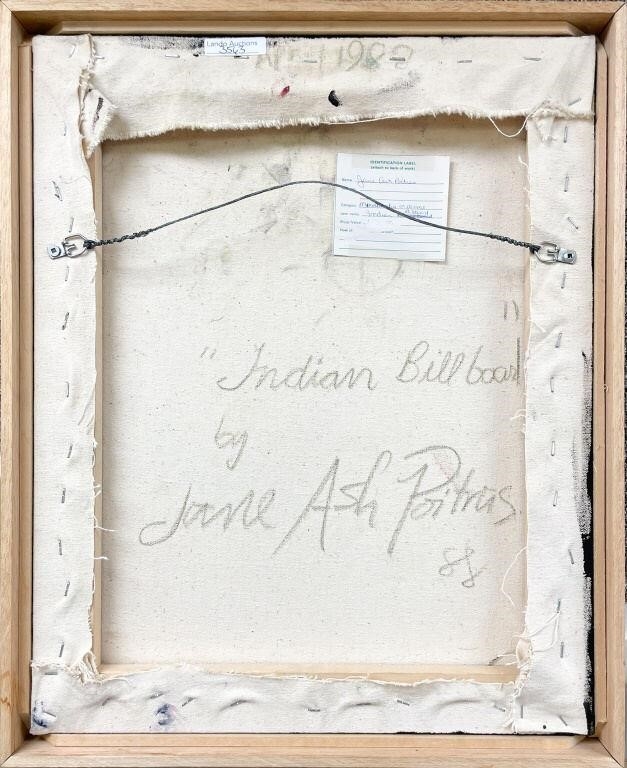 Lando Auctions
3563
IDENTIFICATION LABEL
(attach to back of work)
Name Jane Ash Poitras
Category
Indian
"Indian Billboard
"
by
Jane Ash Poitras
88